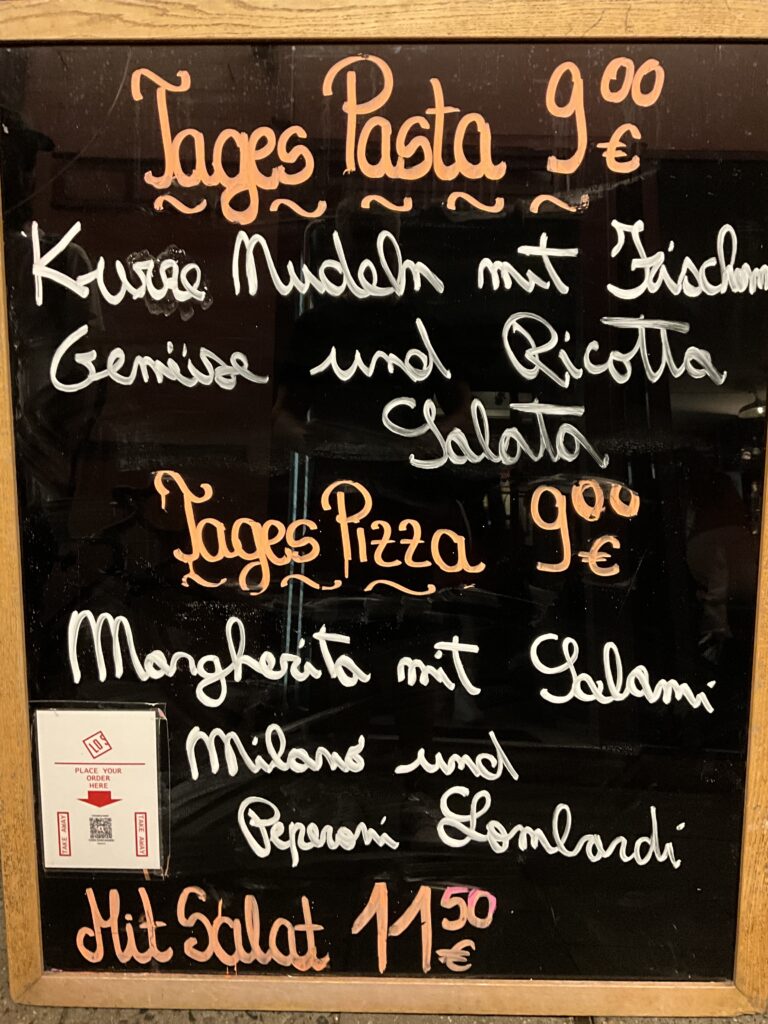 Tages Pasta 9⁰⁰ €
Kurze Nudeln mit Frischem
Gemüse und Ricotta
Salata
Tages Pizza 9⁰⁰ €
Margherita mit Salami
Milano und
Peperoni Lombardi
LOS
PLACE YOUR
ORDER
HERE
TAKE AWAY
TAKE AWAY
Mit Salat 11⁵⁰ €